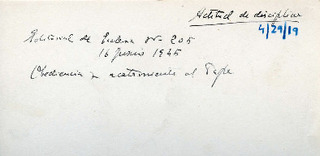 Actitud de disciplina
4/29/19
Editorial de Ecclesia Nº 205
16 junio 1945
Obediencia y acatamiento al Papa